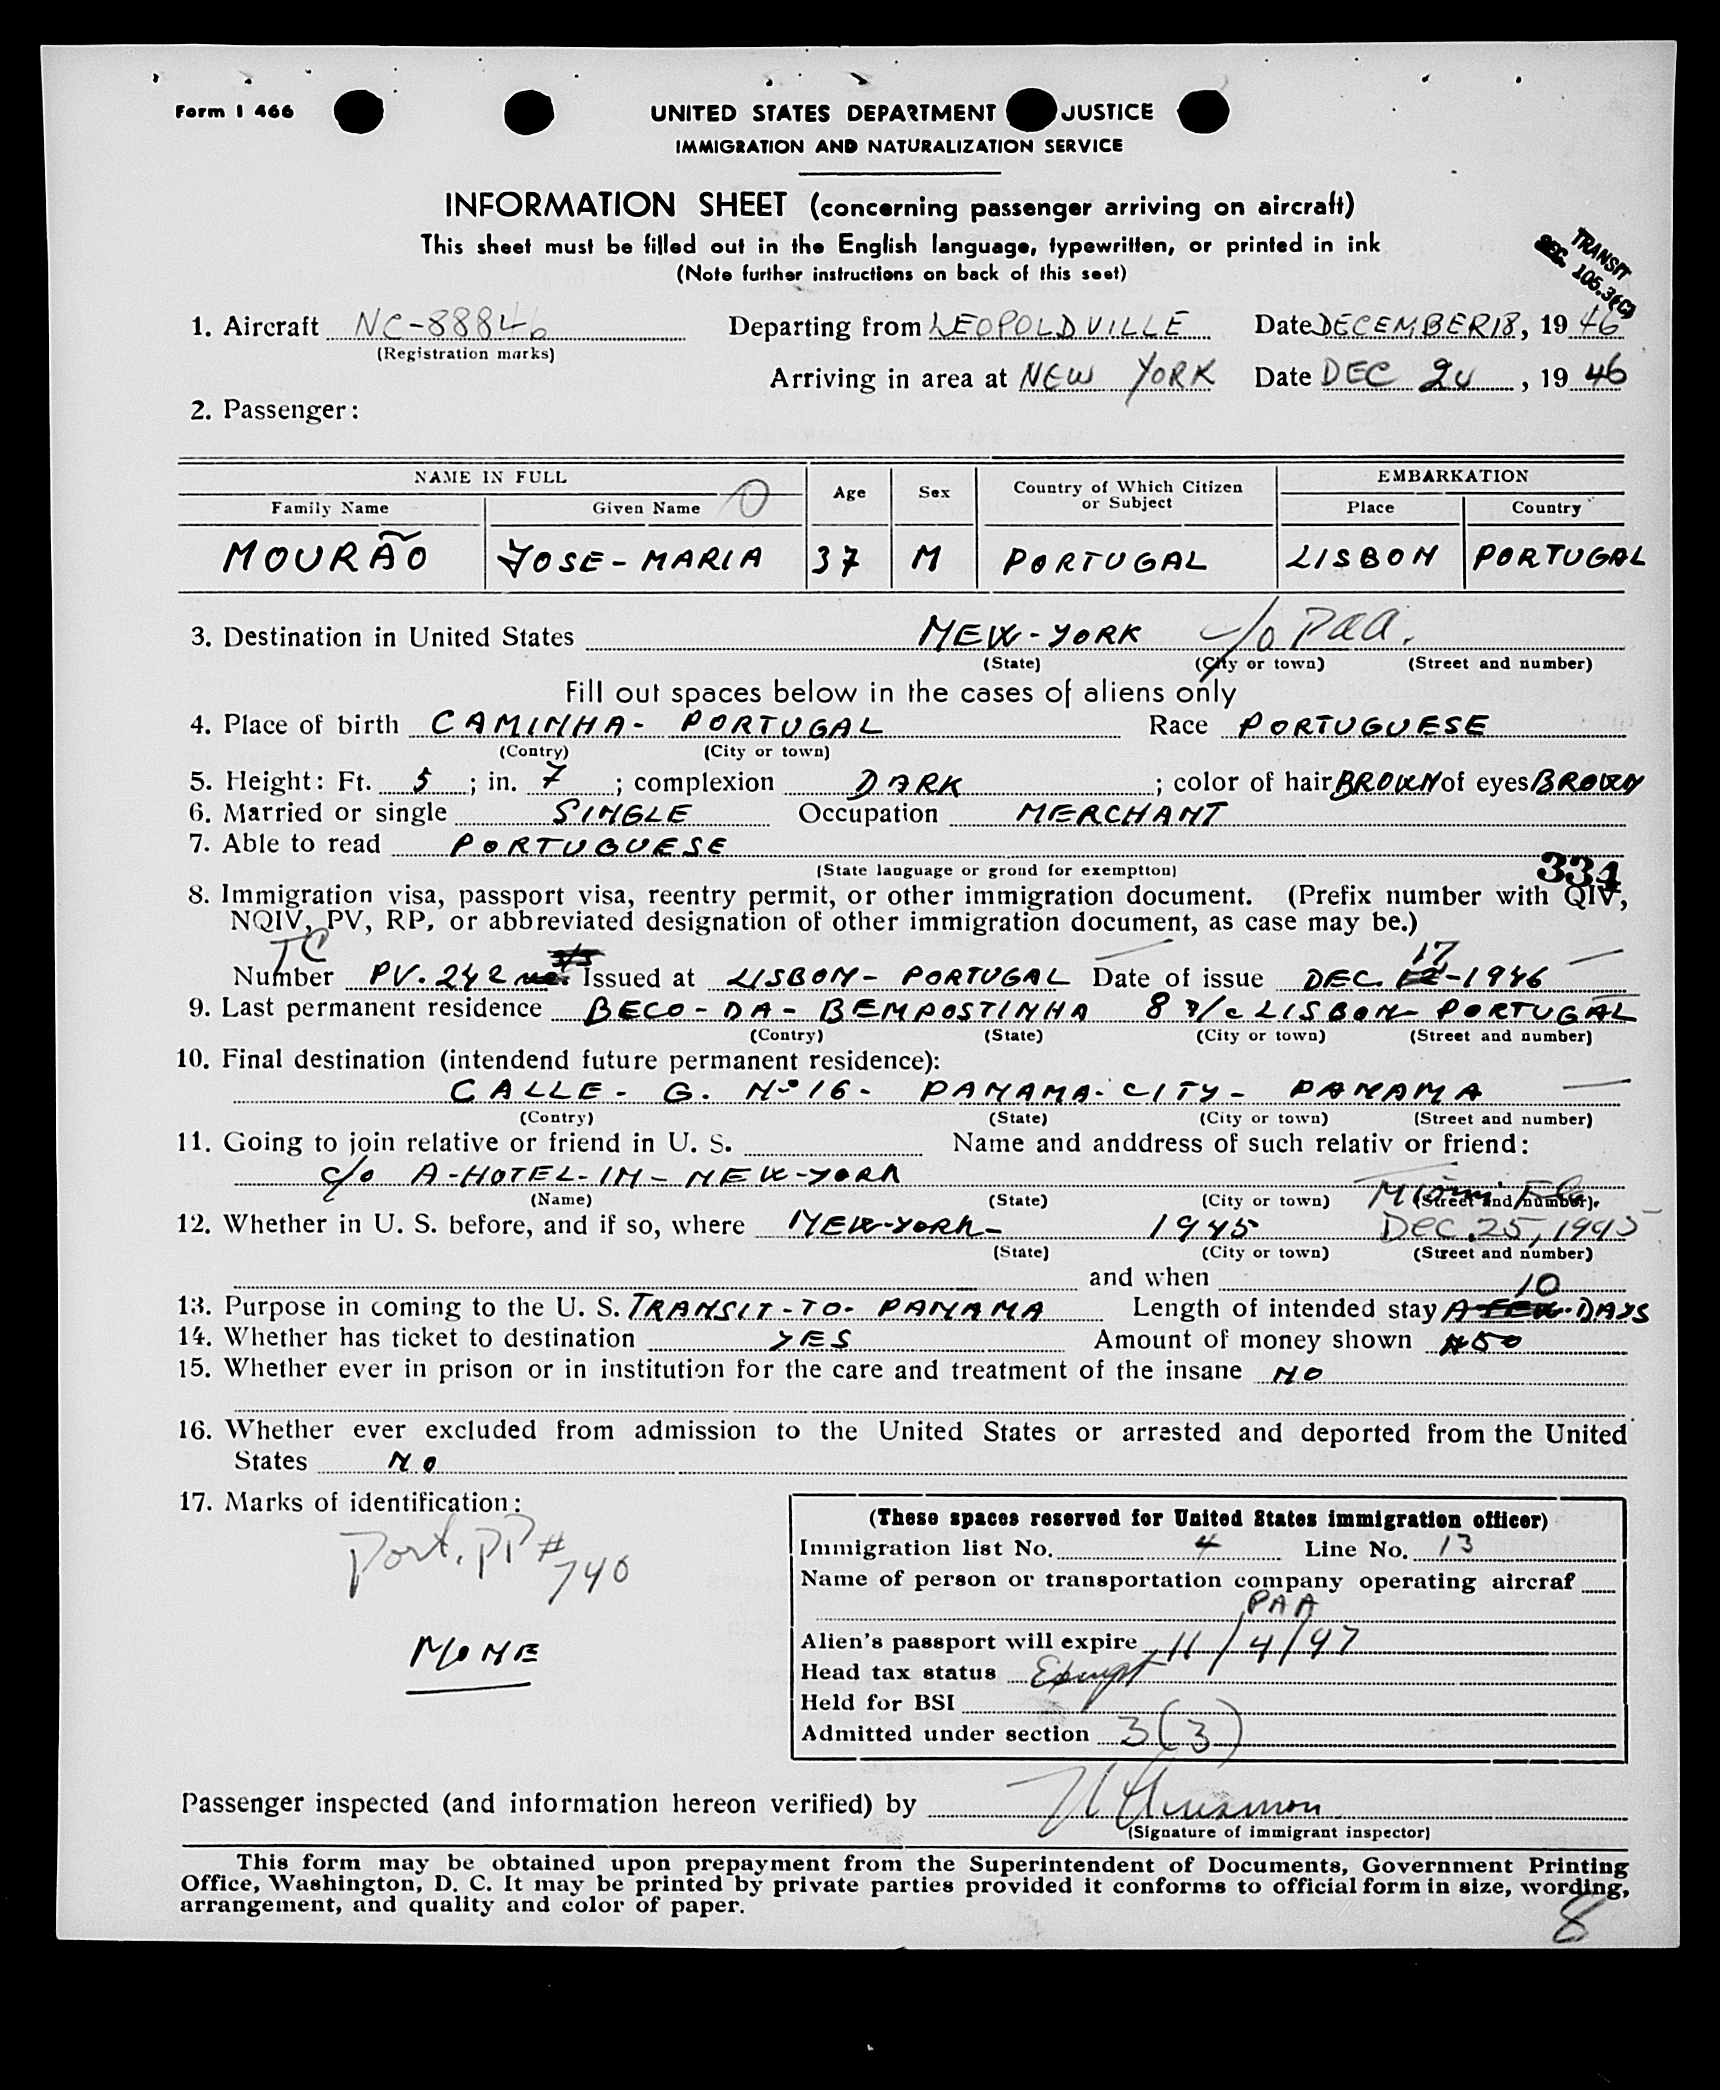 Form I 466
UNITED STATES DEPARTMENT JUSTICE
IMMIGRATION AND NATURALIZATION SERVICE
INFORMATION SHEET (concerning passenger arriving on aircraft)
This sheet must be filled out in the English language, typewritten, or printed in ink
(Note further instructions on back of this seet)
TRANSIT
SEC. 105.3(C)
1. Aircraft NC-88846 Departing from LEOPOLDVILLE Date DECEMBER 18, 19 46
(Registration marks)
Arriving in area at NEW YORK Date DEC 20, 19 46
2. Passenger:
NAME IN FULL Age Sex Country of Which Citizen or Subject EMBARKATION
Family Name Given Name Place Country
MOURÃO JOSE-MARIA 37 M PORTUGAL LISBON PORTUGAL
3. Destination in United States NEW-YORK c/o PAA.
(State) (City or town) (Street and number)
Fill out spaces below in the cases of aliens only
4. Place of birth CAMINHA- PORTUGAL Race PORTUGUESE
(Contry) (City or town)
5. Height: Ft. 5; in. 7; complexion DARK; color of hair BROWN of eyes BROWN
6. Married or single SINGLE Occupation MERCHANT
7. Able to read PORTUGUESE
(State language or grond for exemptton)
334
8. Immigration visa, passport visa, reentry permit, or other immigration document. (Prefix number with QIV,
NQIV, PV, RP, or abbreviated designation of other immigration document, as case may be.)
TC 17
Number PV. 242 Issued at LISBON- PORTUGAL Date of issue DEC. -1946
9. Last permanent residence BECO-DA-BEMPOSTINHA 8 r/c LISBON- PORTUGAL
(Contry) (State) (City or town) (Street and number)
10. Final destination (intendend future permanent residence):
CALLE- G. Nº 16- PANAMA-CITY- PANAMA
(Contry) (State) (City or town) (Street and number)
11. Going to join relative or friend in U. S. Name and anddress of such relativ or friend:
c/o A-HOTEL-IN-NEW-YORK
(Name) (State) (City or town) (Street and number).
Miami Fla.
12. Whether in U. S. before, and if so, where NEW-YORK- 1945 Dec. 25, 1945
(State) (City or town) (Street and number)
and when
10
13. Purpose in coming to the U. S. TRANSIT-TO-PANAMA Length of intended stay A FEW-DAYS
14. Whether has ticket to destination YES Amount of money shown $50
15. Whether ever in prison or in institution for the care and treatment of the insane NO
16. Whether ever excluded from admission to the United States or arrested and deported from the United
States NO
17. Marks of identification:
Port. PP# 740
NONE
(These spaces reserved for United States immigration officer)
Immigration list No. 4 Line No. 13
Name of person or transportation company operating aircraf
PAA
Alien's passport will expire 11/4/47
Head tax status Exempt
Held for BSI
Admitted under section 3(3)
Passenger inspected (and information hereon verified) by
(Signature of immigrant inspector)
This form may be obtained upon prepayment from the Superintendent of Documents, Government Printing
Office, Washington, D. C. It may be printed by private parties provided it conforms to official form in size, wording,
arrangement, and quality and color of paper.
8